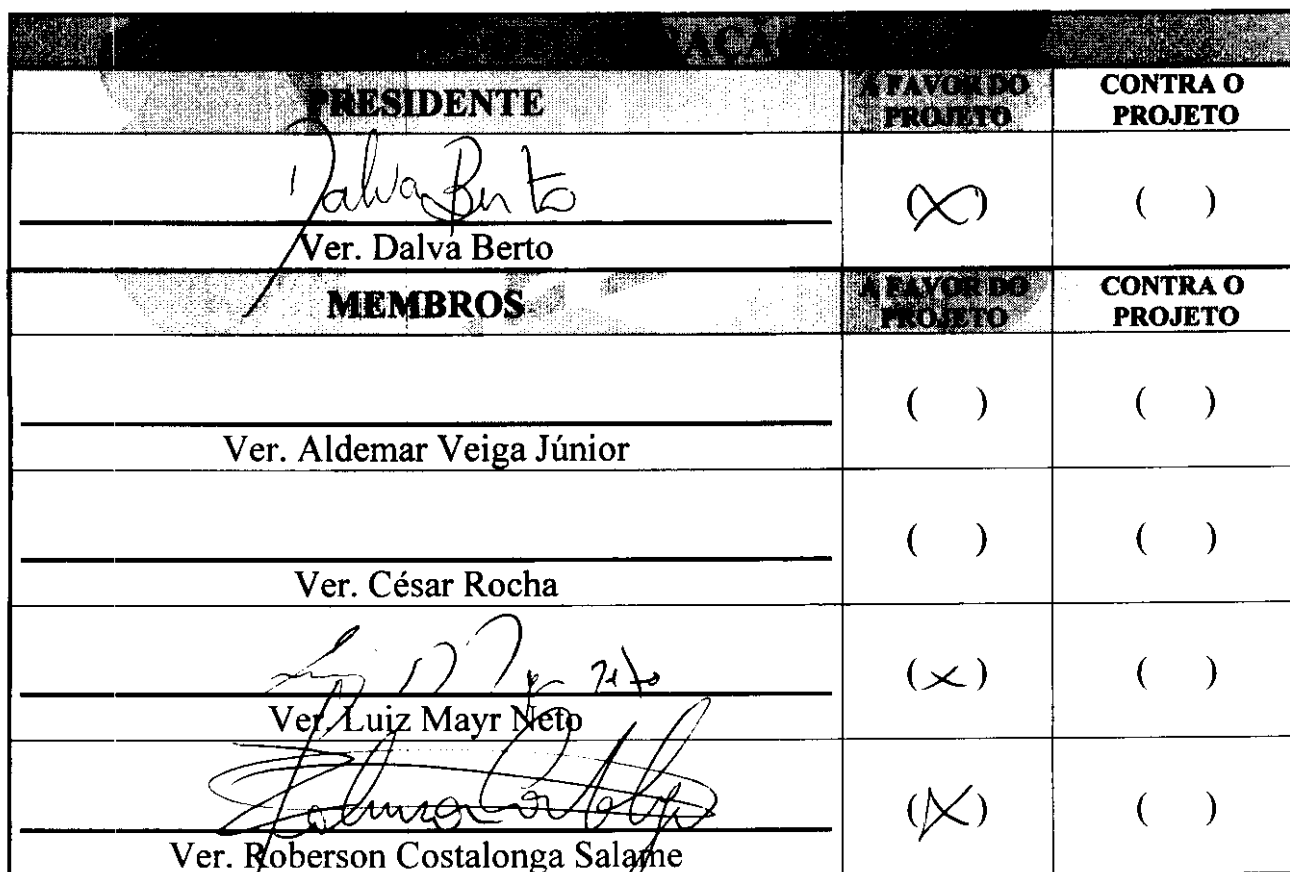 PRESIDENTE
A FAVOR DO PROJETO
CONTRA O PROJETO
Dalva Berto
(X)
( )
Ver. Dalva Berto
MEMBROS
A FAVOR DO PROJETO
CONTRA O PROJETO
( )
( )
Ver. Aldemar Veiga Júnior
( )
( )
Ver. César Rocha
(X)
( )
Ver. Luiz Mayr Neto
(X)
( )
Ver. Roberson Costalonga Salame